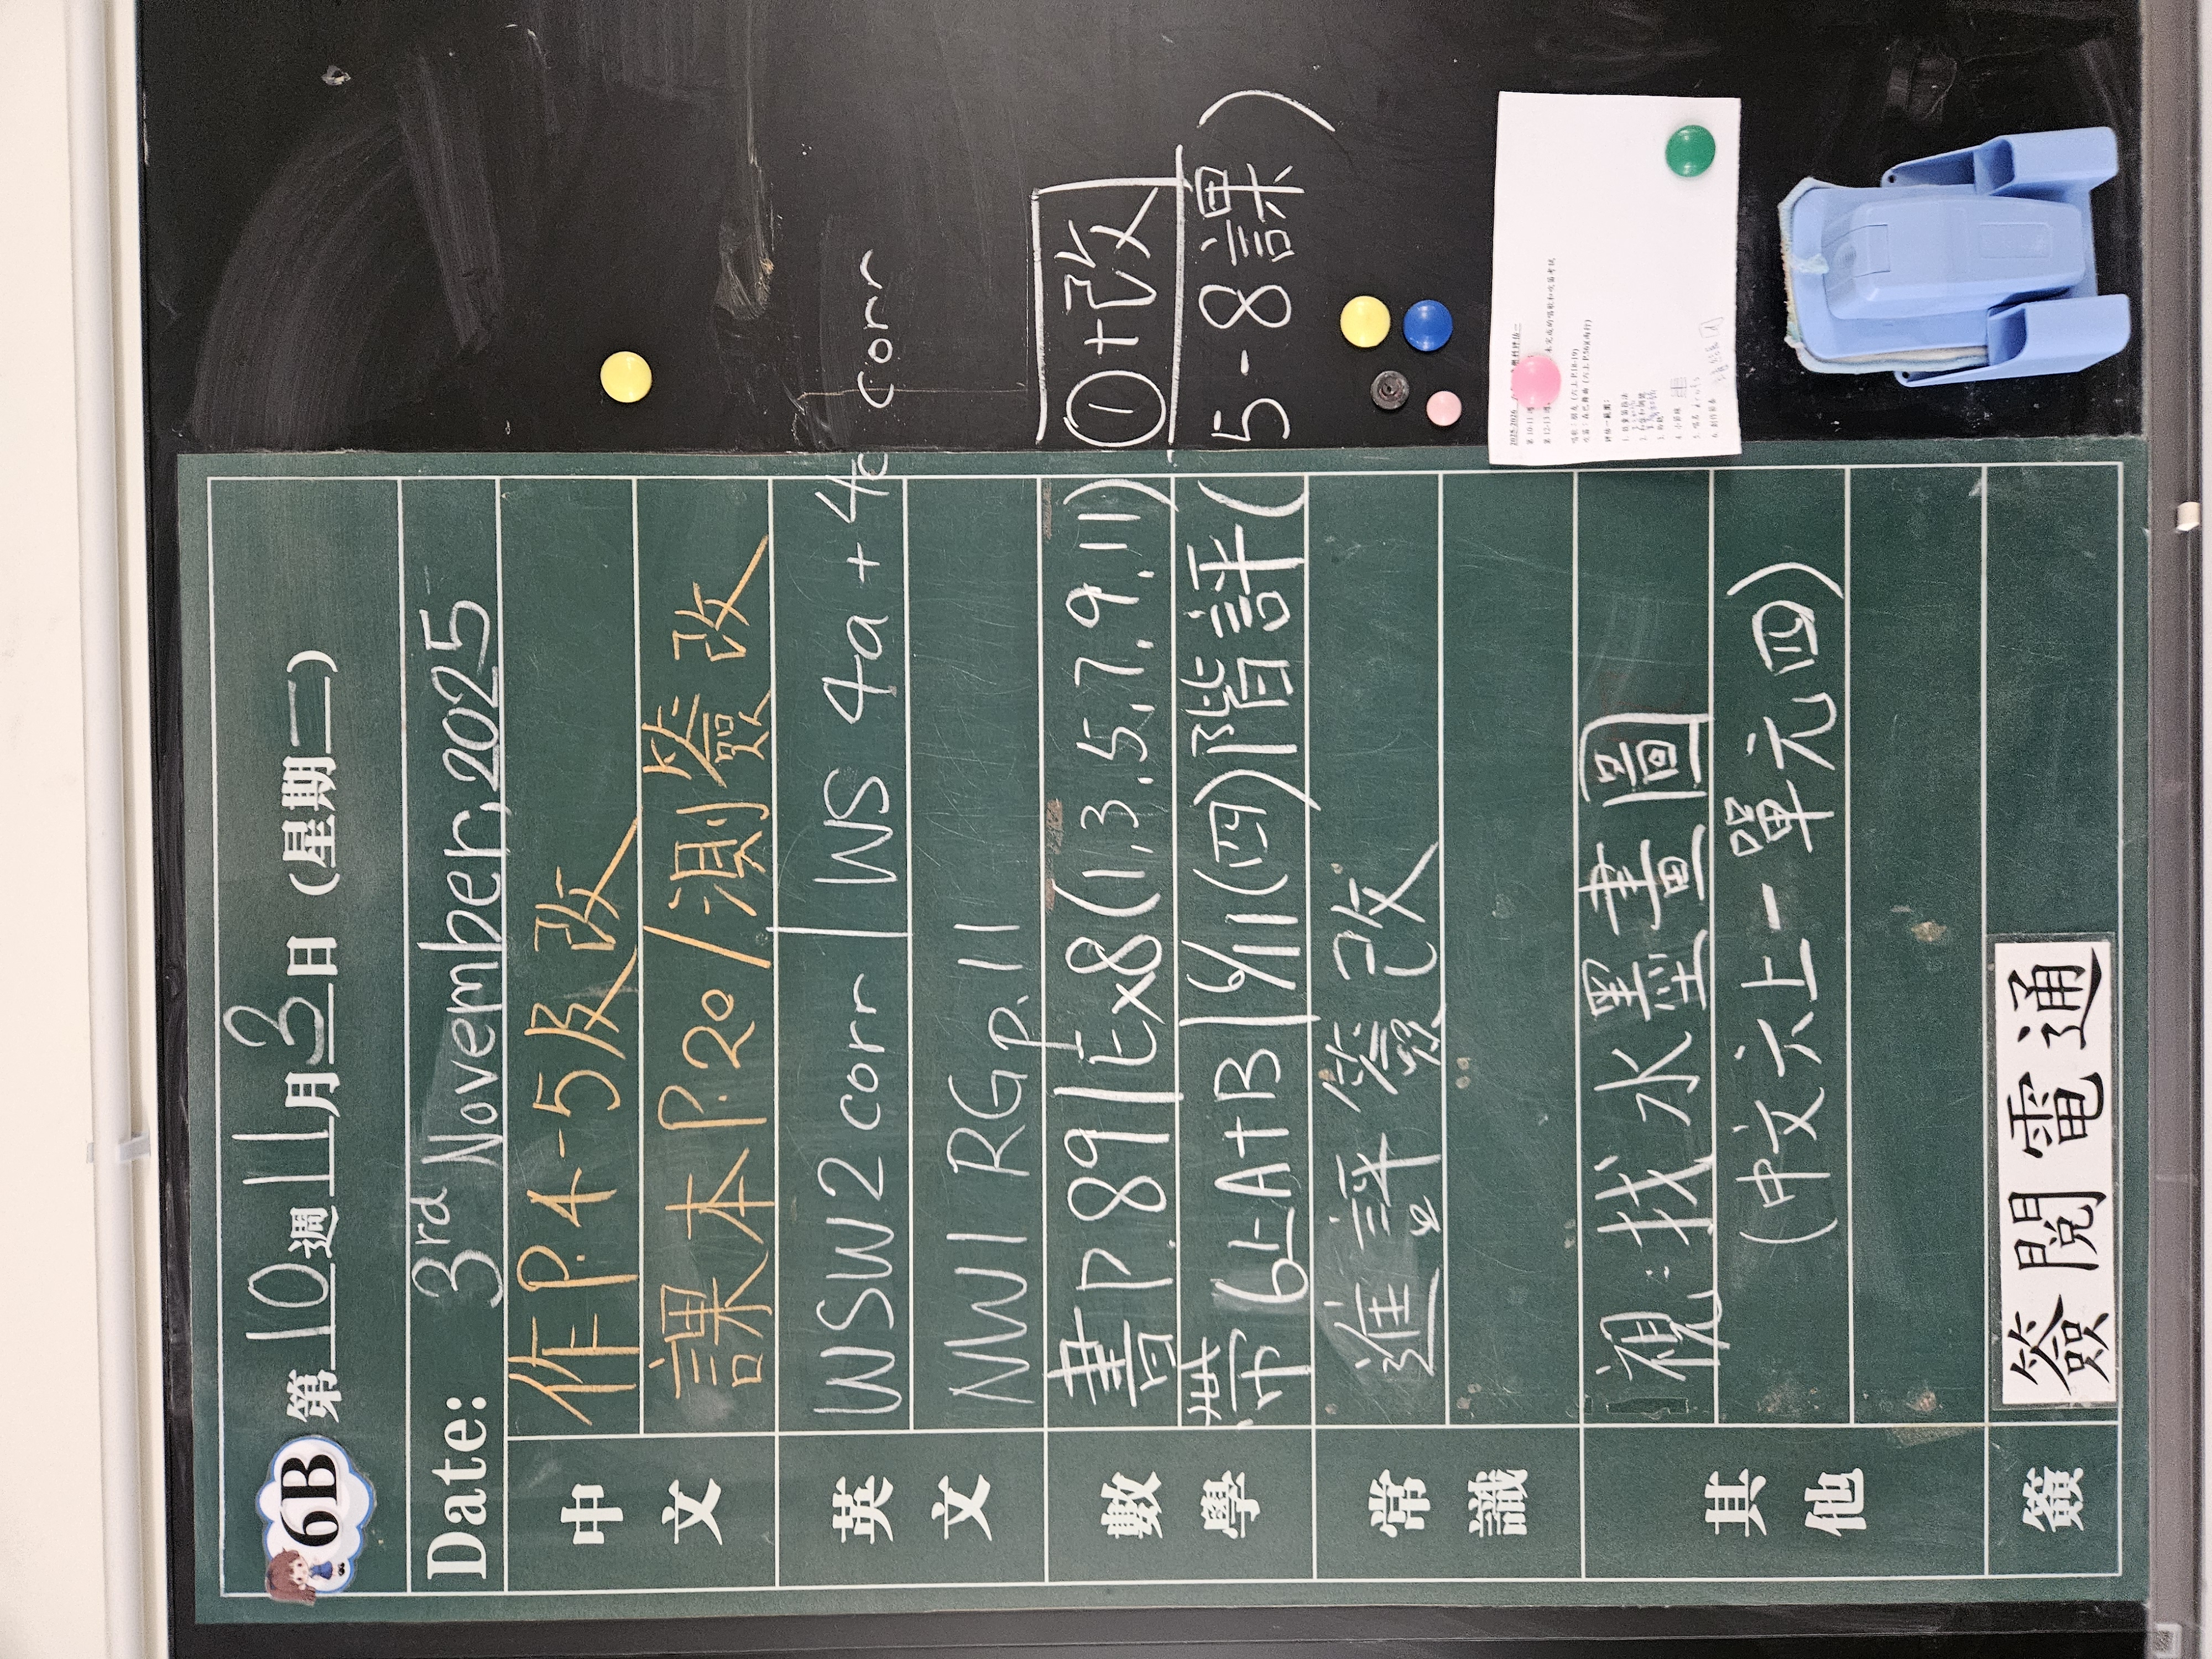 6B 第10週11月3日(星期二)
Date: 3rd November, 2025
中文
作P.4-5及改
課本P.20/測簽改
英文
WSW2 corr | WS 4a + 4c corr
NW1 RG p.11
數學
書P.89|Ex8(1,3,5,7,9,11)①+改
帶6上A+B|6/11(四)階評(5-8課)
常識
進評簽改
其他
視:找水墨畫圖
(中文六上-單元四)
簽
簽閱電通